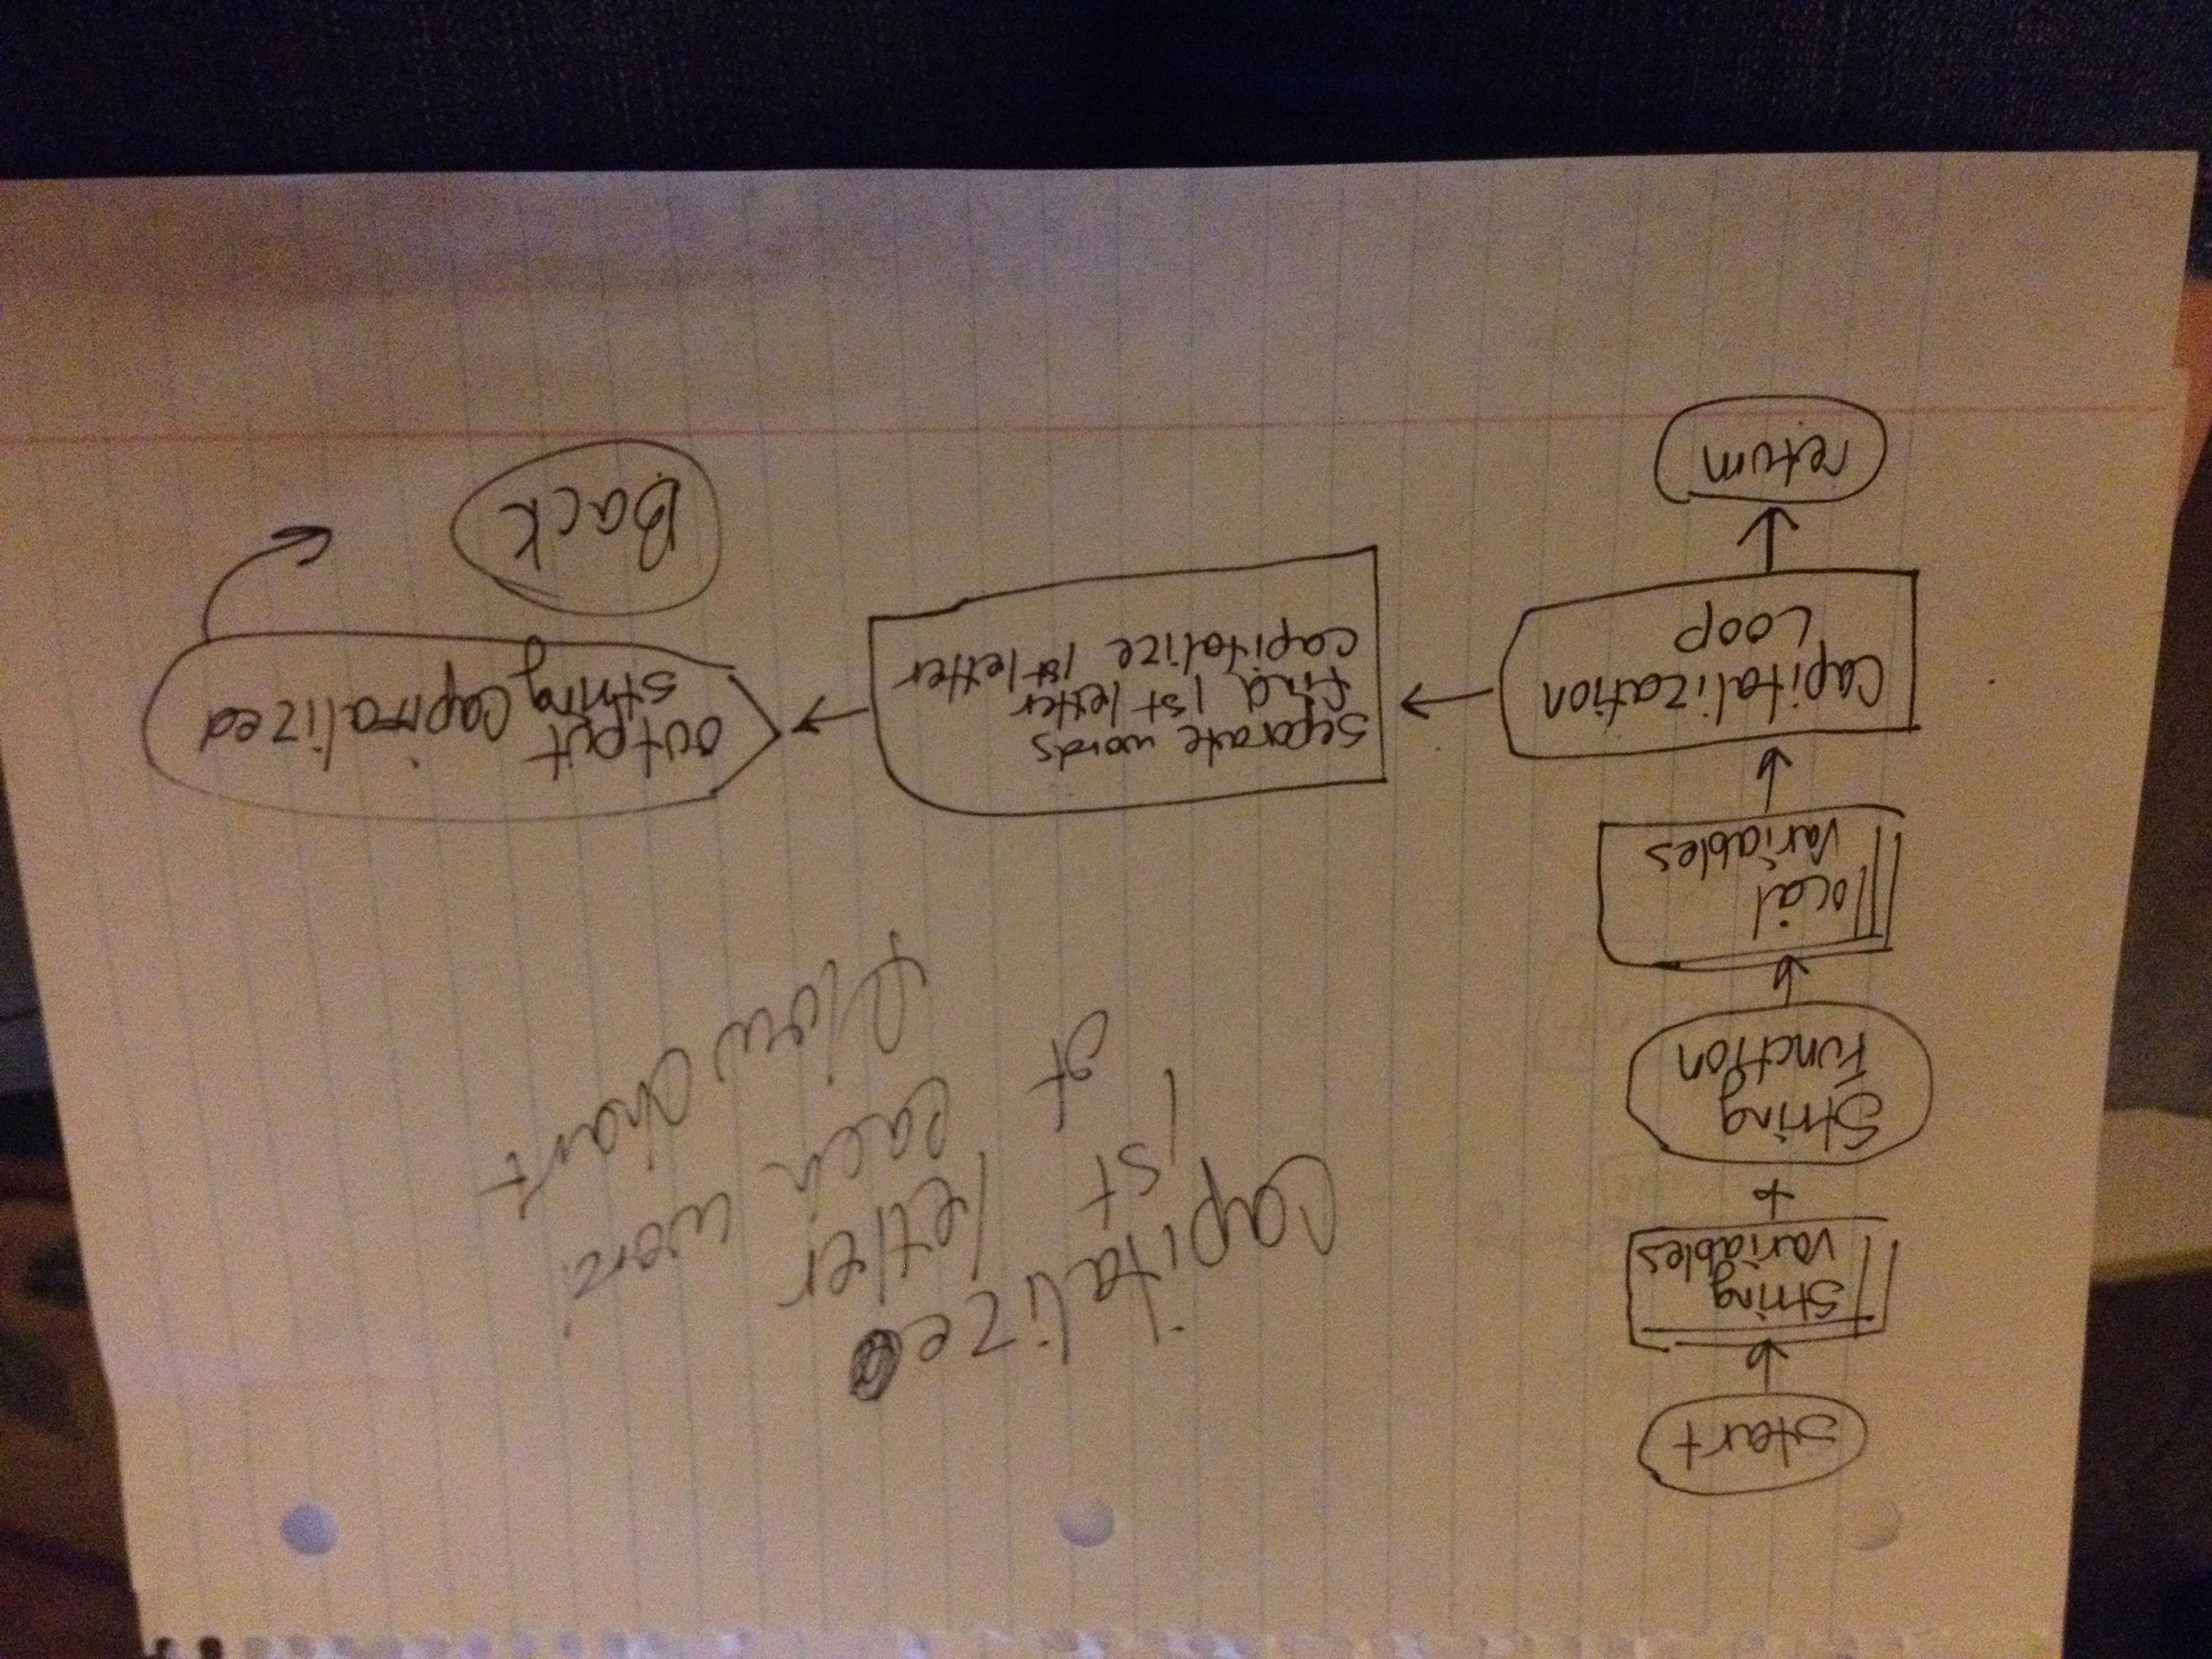 Capitalize
1st letter
of each word
flow chart
start
String
variables
String
Function
local
variables
Capitalization
Loop
return
separate words
find 1st letter
capitalize 1st letter
output
string capitalized
Back